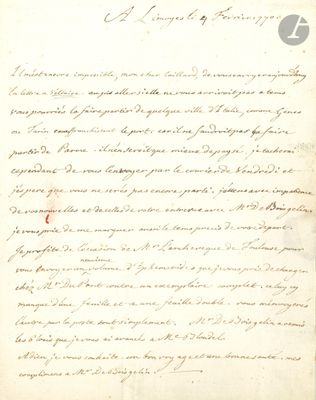 A Limoges le 9 Fevrier 1770
Il m'est encore impossible, mon cher Caillard, de vous envoyer aujourd'huy
la lettre a Voltaire. auquel elle si elle ne vous arrivoit pas a tems
vous pourriés la faire partir de quelque ville d'Italie, comme Genes
ou Turin en affranchissant le port. car il ne faudroit pas la faire
partir de Parme. il n'en seroit que mieux depaysé. je tacherai
cependant de vous l'envoyer par le courier de Vendredi et
j'espere que vous ne serés pas encore parti. j'attens avec impatience
de vos nouvelles et de celles de votre entrevue avec Mr. De Boisgelin
je vous prie de me marquer aussi le tems precis de votre depart.
Je profite de l'occasion de Mr. l'archeveque de Toulouse pour
vous envoyer un volume d'Ephemerides que je vous prie de changer
chez Mr. DuPont contre un exemplaire complet. celuy cy
manque d'une feuille et a une feuille double. vous m'envoyerés
l'autre par la poste tout simplement. Mr. De Boisgelin a remis
les 6 louis que je vous ai avancés a Mr. Blondel.
Adieu, je vous souhaite un bon voyage et une bonne santé. mes
complimens a Mr. De Boisgelin.